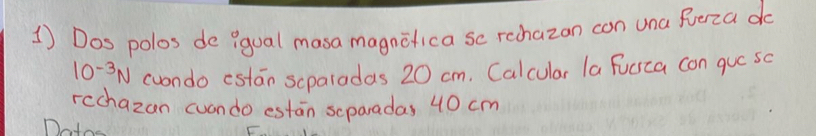 1) Dos polos de igual masa magnética se rechazan con una fuerza de
10-³N cuando están separadas 20 cm. Calcular la fuerza con que se
rechazan cuando están separadas 40 cm
Datos